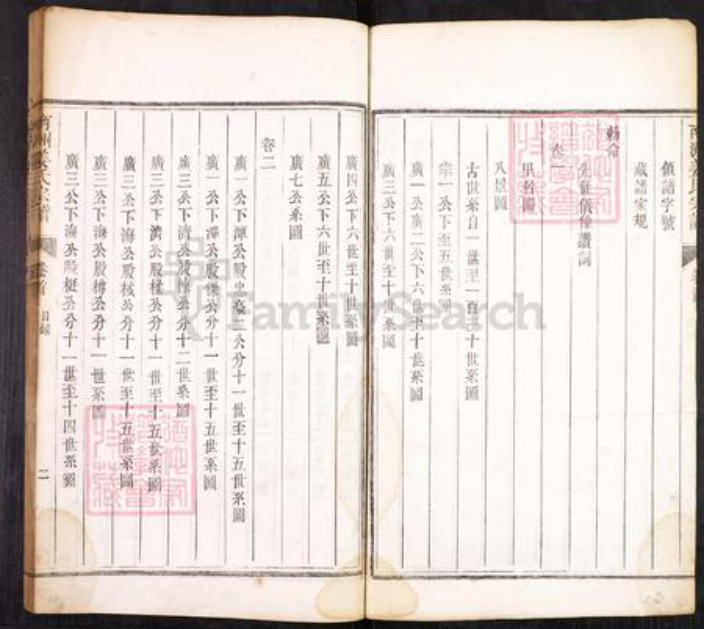 領譜字號
藏譜家規
勅命
先祖儀像讚詞
里居圖
八景圖
古世系自一世至一百三十世系圖
宗一公下至五世系圖
廣一公廣二公下六世至十世系圖
廣三公下六世至十世系圖
廣四公下六世至十世系圖
廣五公下六世至十世系圖
廣七公系圖
卷二
廣一公下潭公股
公分十一世至十五世系圖
廣一公下潭公股
公分十一世至十五世系圖
廣三公下濟公股
公分十二世系圖
廣三公下濟公股
公分十一世至十五世系圖
廣三公下海公股
公分十一世至十五世系圖
廣三公下海公股
公分十一世系圖
廣三公下海公股梃公分十一世至十四世系圖
卷首
目錄
二
FamilySearch